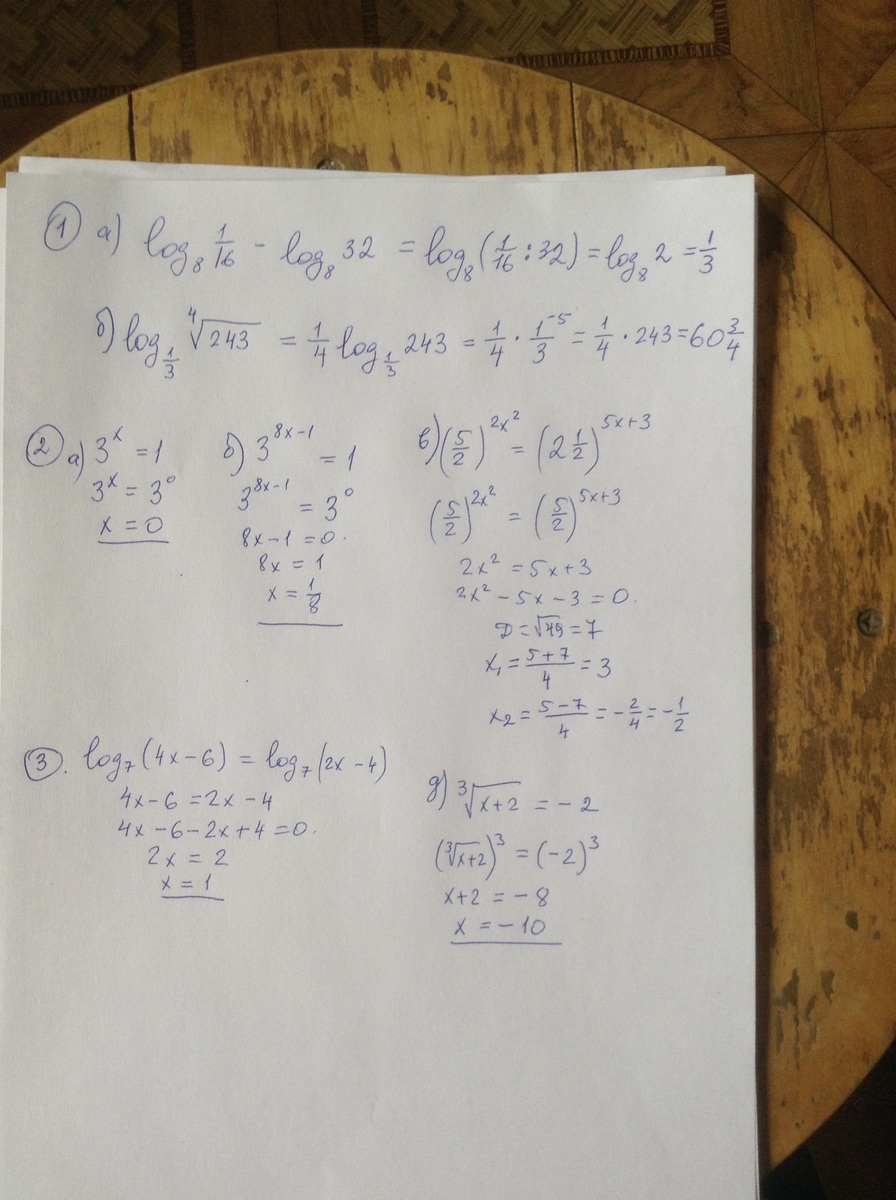 ① а) log₈ 1/16 - log₈ 32 = log₈(1/16 : 32) = log₈ 2 = 1/3
б) log_{1/3} ⁴√243 = 1/4 log_{1/3} 243 = 1/4 · 1/3⁻⁵ = 1/4 · 243 = 60 3/4
② а) 3ˣ = 1
3ˣ = 3⁰
x = 0
б) 3^{8x-1} = 1
3^{8x-1} = 3⁰
8x-1 = 0.
8x = 1
x = 1/8
в) (5/2)^{2x²} = (2 1/2)^{5x+3}
(5/2)^{2x²} = (5/2)^{5x+3}
2x² = 5x+3
2x² - 5x - 3 = 0.
D = √49 = 7
x₁ = (5+7)/4 = 3
x₂ = (5-7)/4 = -2/4 = -1/2
③. log₇(4x-6) = log₇(2x-4)
4x-6 = 2x-4
4x-6-2x+4 = 0.
2x = 2
x = 1
д) ³√(x+2) = -2
(³√(x+2))³ = (-2)³
x+2 = -8
x = -10